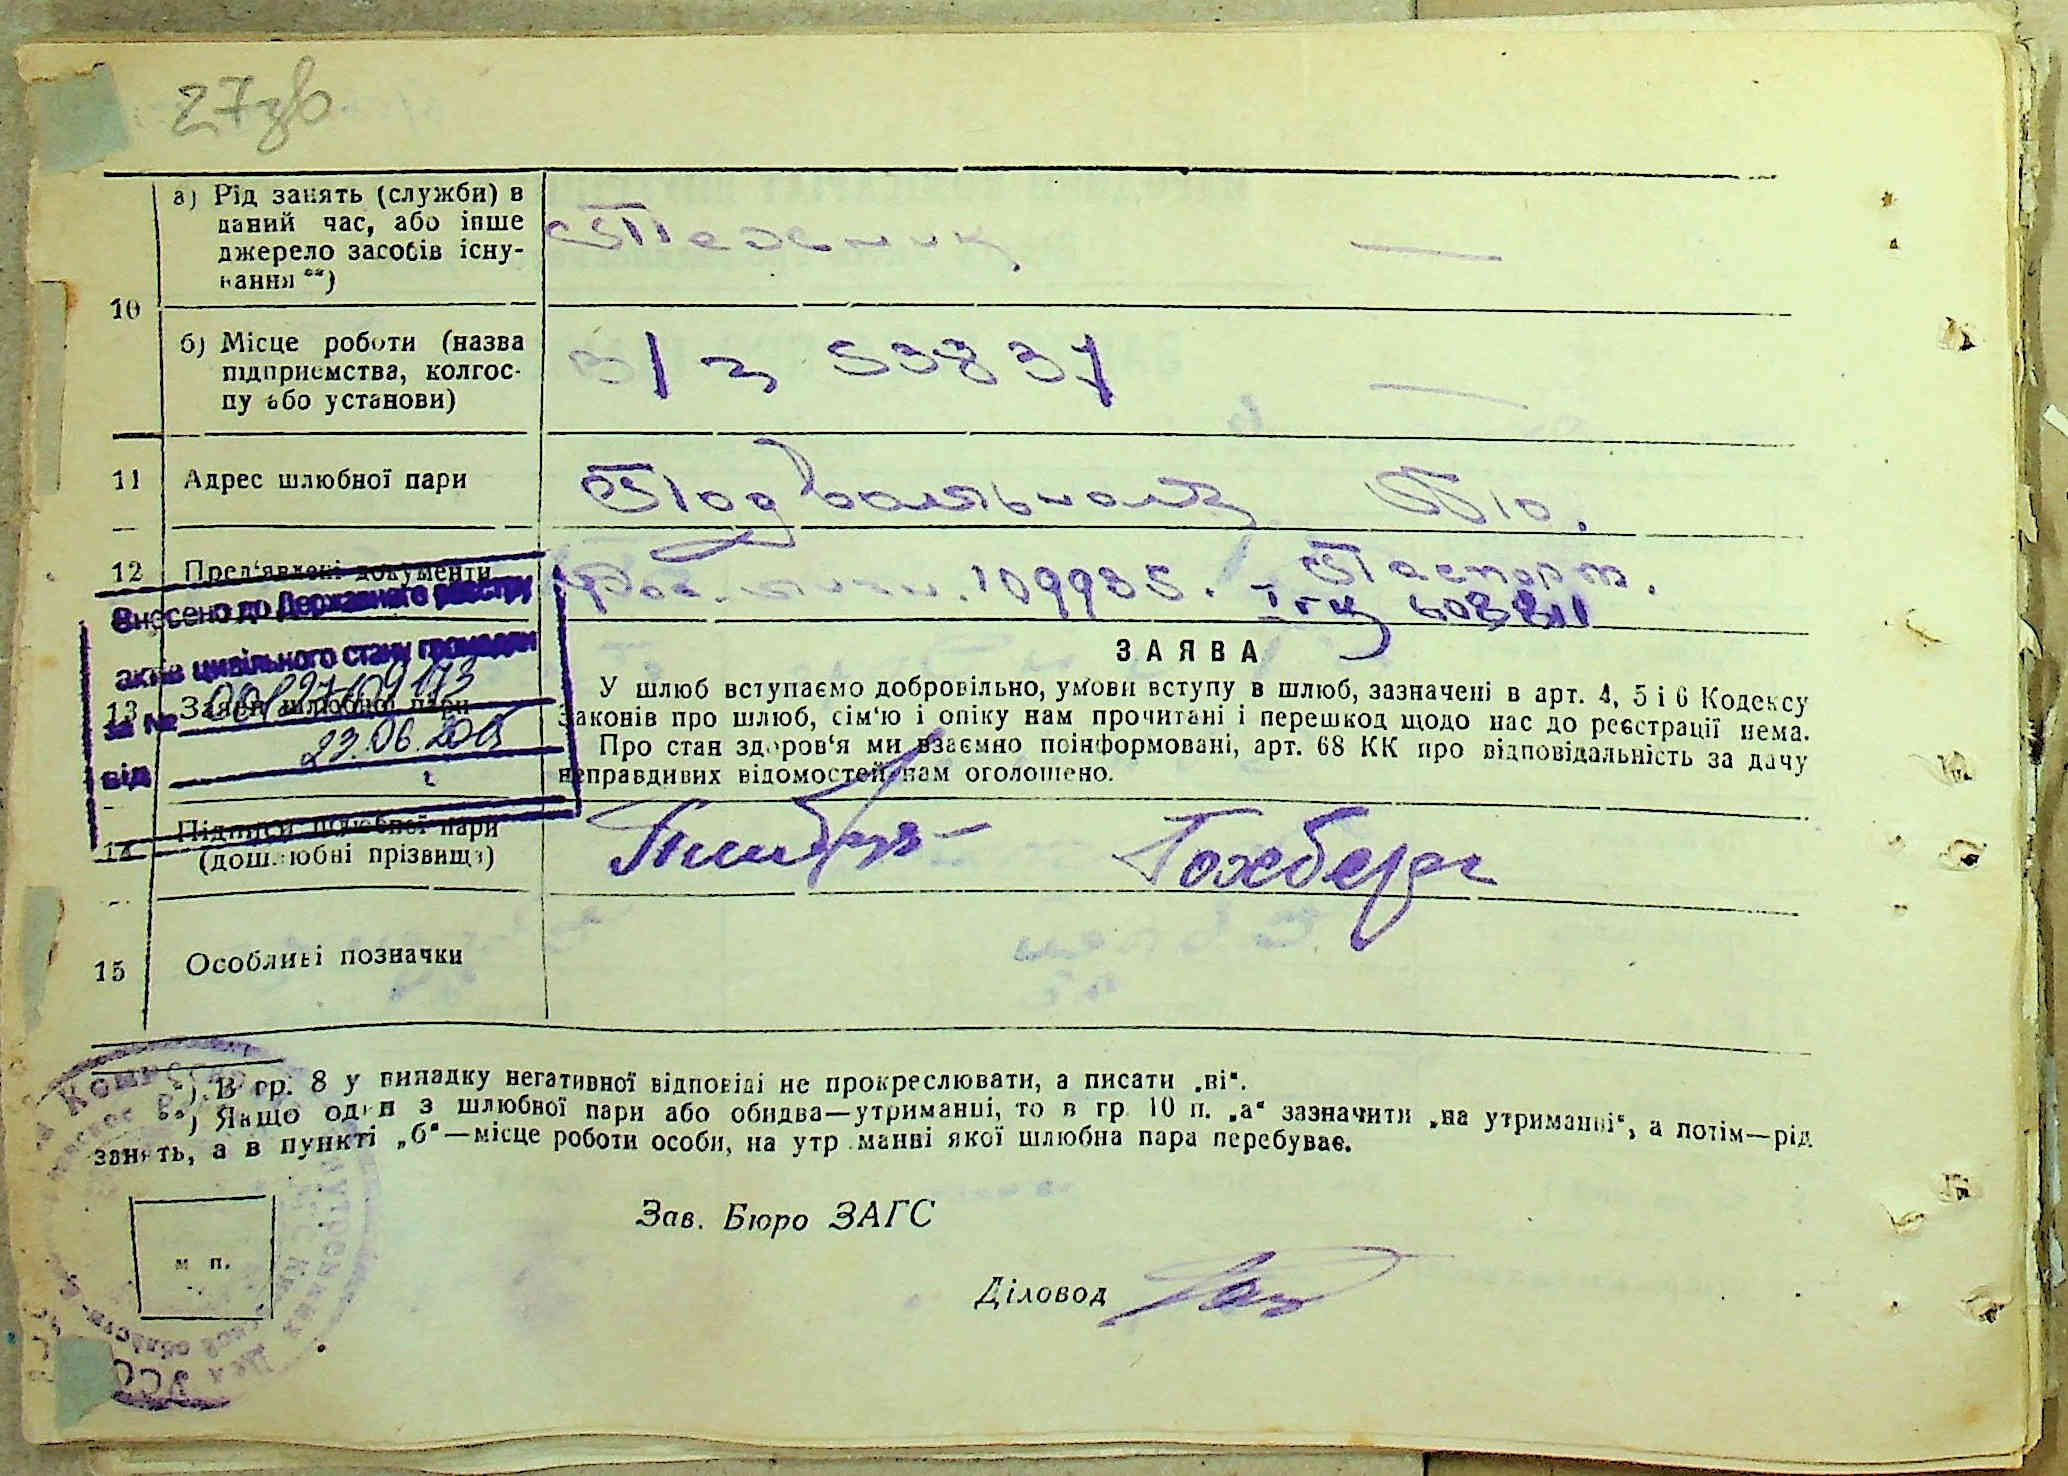 27зв
а) Рід занять (служби) в
даний час, або інше
джерело засобів існу-
вання **)
10
б) Місце роботи (назва
підприємства, колгос-
пу або установи)
в/ч 53837
11 Адрес шлюбної пари
12 Пред'явлені документи
109935. Паспорт.
Внесено до Державного реєстру
актів цивільного стану громадян
за №
від 23.06.2015
13 Заява шлюбної пари
ЗАЯВА
У шлюб вступаємо добровільно, умови вступу в шлюб, зазначені в арт. 4, 5 і 6 Кодексу
законів про шлюб, сім'ю і опіку нам прочитані і перешкод щодо нас до реєстрації нема.
Про стан здоров'я ми взаємно поінформовані, арт. 68 КК про відповідальність за дачу
неправдивих відомостей нам оголошено.
14 Підписи шлюбної пари
(дошлюбні прізвища)
Гохберг
15 Особливі позначки
*) В гр. 8 у випадку негативної відповіді не прокреслювати, а писати „ні“.
**) Якщо один з шлюбної пари або обидва—утриманці, то в гр. 10 п. „а“ зазначити „на утриманні“, а потім—рід
занять, а в пункті „б“—місце роботи особи, на утриманні якої шлюбна пара перебуває.
Зав. Бюро ЗАГС
м п.
Діловод